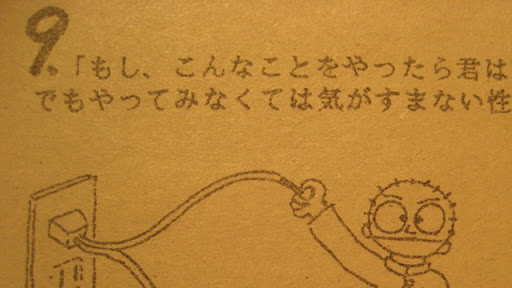 9.
「もし、こんなことをやったら君は
でもやってみなくては気がすまない性